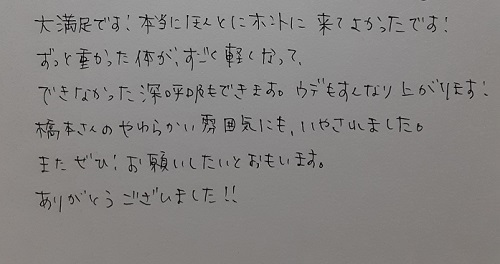 大満足です！本当にほんとにホントに来てよかったです！
ずっと重かった体が、すごく軽くなって、
できなかった深呼吸もできます。ウデもすんなり上がります！
橋本さんのやわらかい雰囲気にも、いやされました。
またぜひ！お願いしたいとおもいます。
ありがとうございました！！